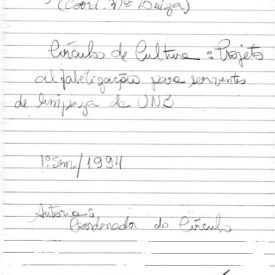 (Coord. Mª Luiza)
Círculo de Cultura : Projeto
alfabetização para serventes
de limpeza da UNB
1º Sem/1994
Antonio
Coordenador do Círculo